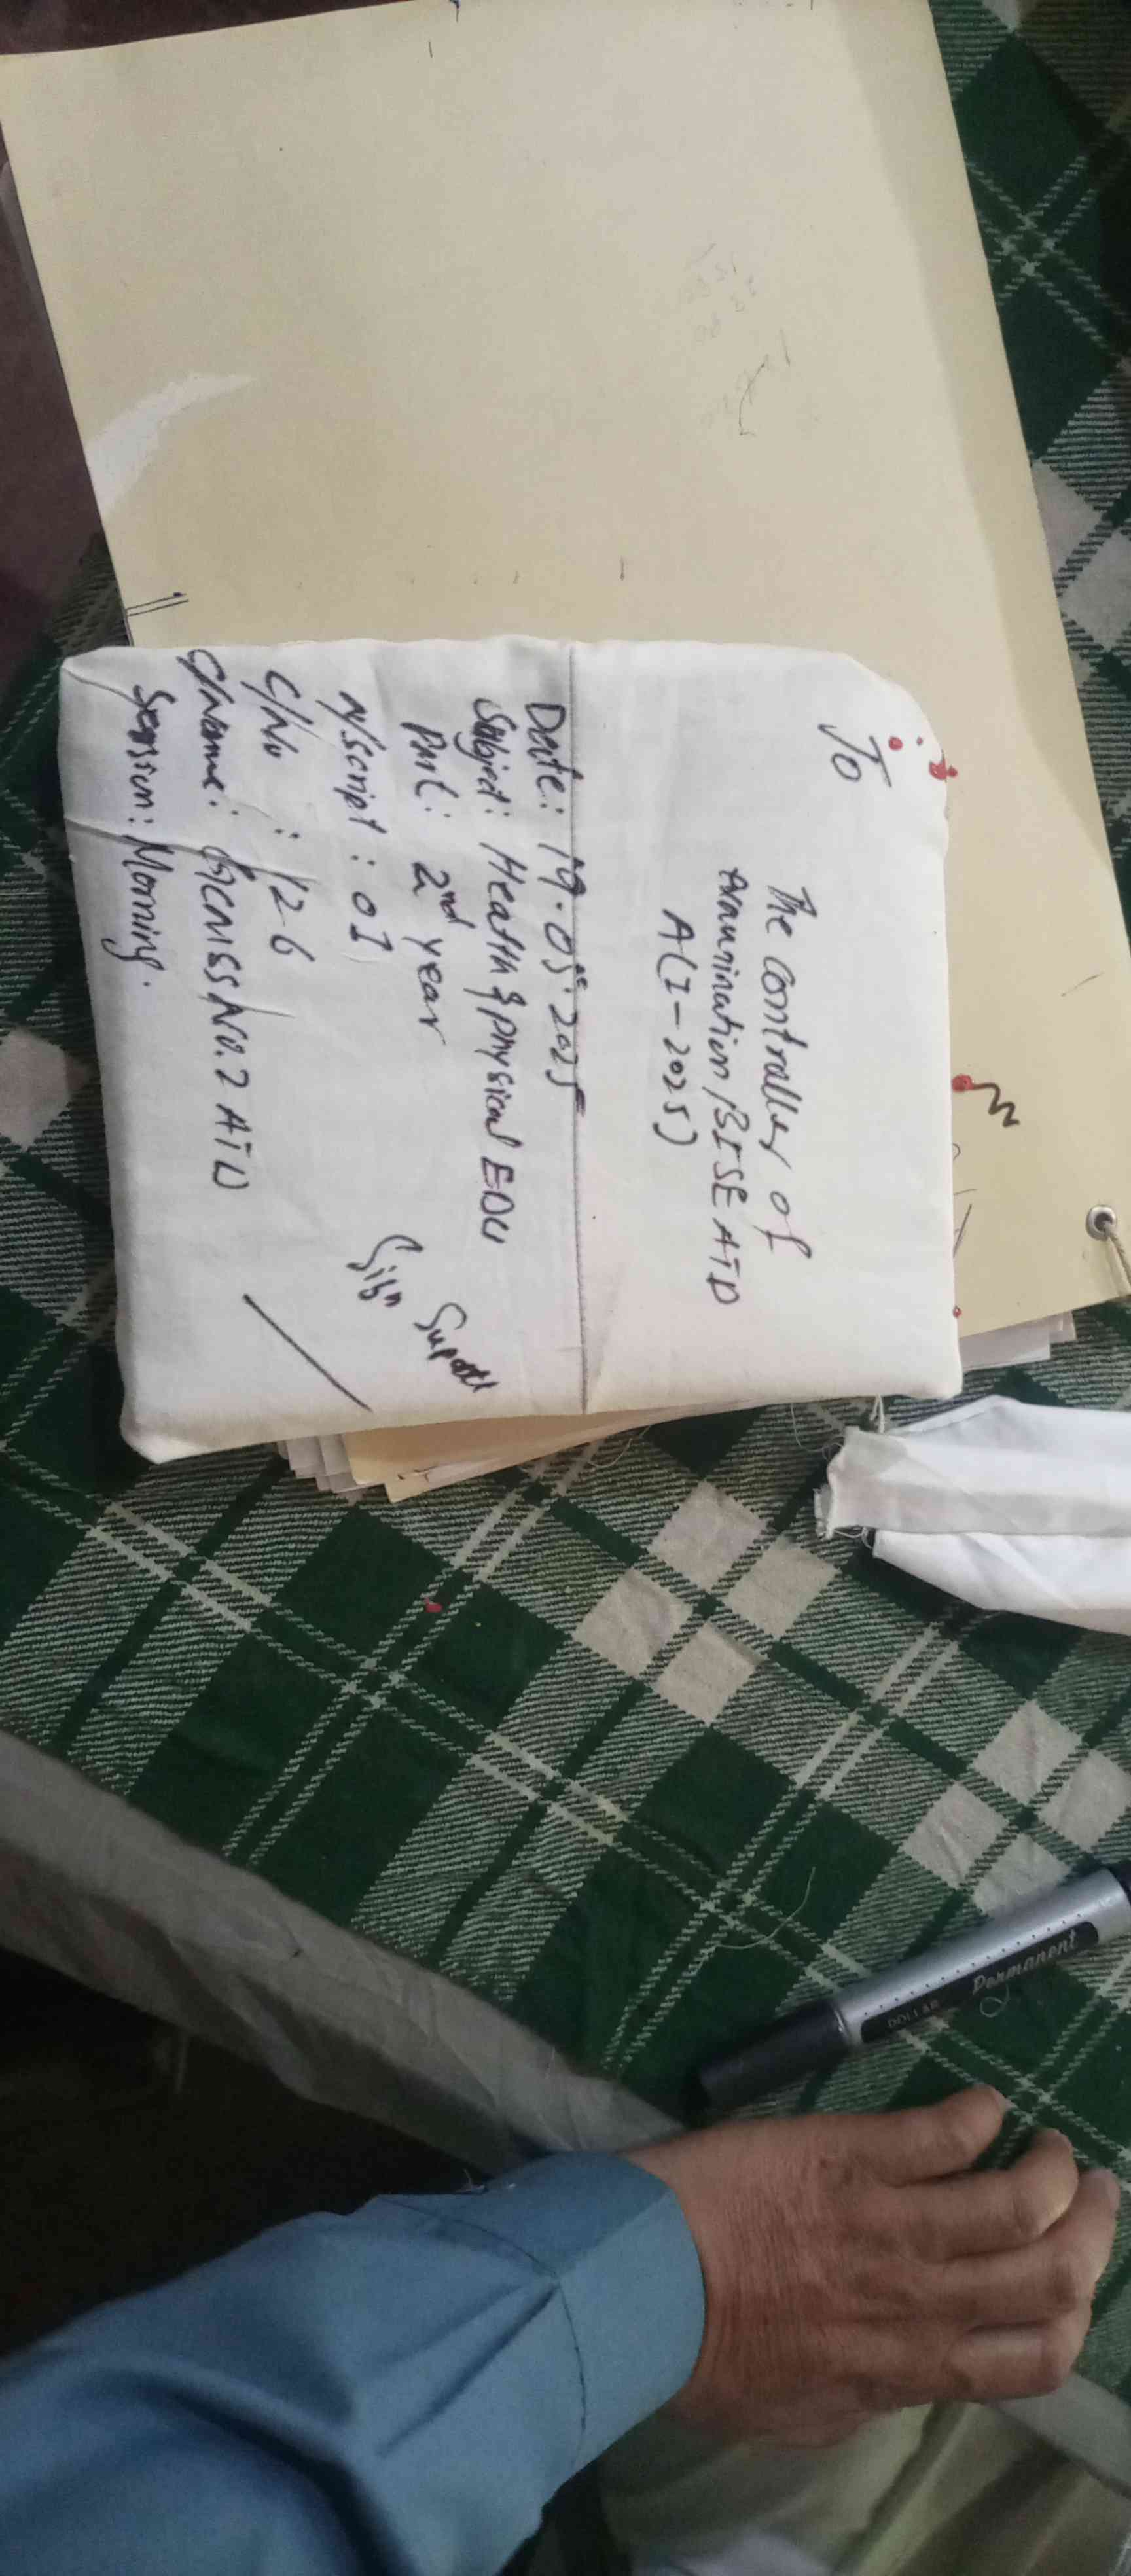 To
The controller of
examination, BISE ATD
A(I-2025)
Date: 19.05.2025
Subject: Heatth & physical EDU
Part: 2nd year
N/Script: 01
C/No: 126
C/Name: GCMSS No. 2 ATD
Session: Morning.
Sign Supdtt
DOLLAR Permanent